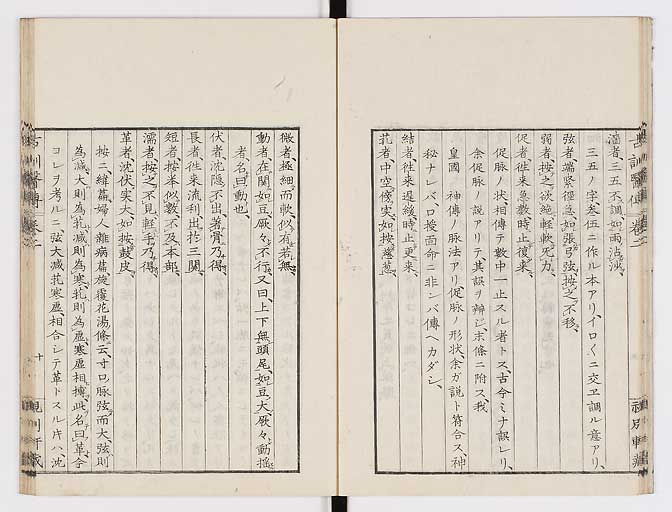 濇者、三五不調、如雨沾沙、
三五ノ字叁伍ニ作ル本アリ、イロくニ交ヱ調ル意アリ、
弦者、端緊徑急、如張弓弦、按之不移、
弱者、按之欲絶、輕軟无力、
促者、徃来急數、時止復来、
促脉ノ状、相傳テ數中一止スル者トス、古今ミナ誤レリ、
余促脉ノ説アリテ、其誤ヲ辨ジ、末條ニ附ス、我
皇國 神傳ノ脉法アリ、促脉ノ形状、余ガ説ト符合ス、神
秘ナレバ、口授面命ニ非ンバ傳ヘカタシ、
結者、徃来遲緩、時止更来、
芤者、中空、傍实、如按葱葉、
微者、極細而軟、似有若無、
動者、在関、如豆、厥々不行、又曰、上下無頭尾、如豆大、厥々動搖
者、名曰動也、
伏者、沈隐不出、著骨乃得、
長者、徃来流利、出於三関、
短者、按举似數、不及本部、
濡者、按之不見、輕手乃得、
革者、沈伏实大、如按鼓皮、
按ニ緯篇、婦人雜病篇、旋覆花湯條云、寸口脉弦而大、弦則
為減、大則為芤、減則為寒、芤則為虚、寒虚相摶、此名曰革、今
コレヲ考ルニ、弦大減芤寒虚、相合シテ革トスル片ハ、沈
古訓醫傳 卷二
十